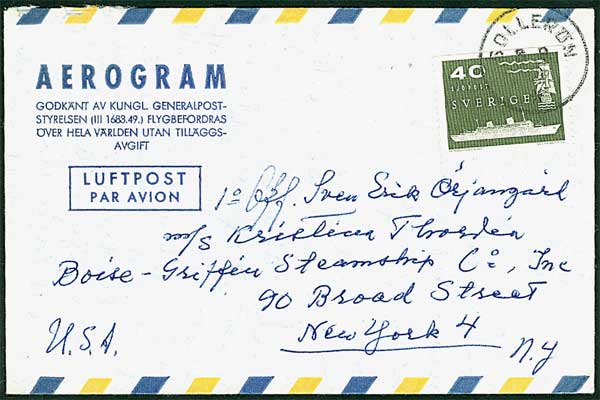 AEROGRAM
GODKÄNT AV KUNGL. GENERALPOST-
STYRELSEN (III 1683.49.) FLYGBEFORDRAS
ÖVER HELA VÄRLDEN UTAN TILLÄGGS-
AVGIFT
LUFTPOST
PAR AVION
SOLLERÖN
40
SJÖPOST
SVERIGE
1:o Off. Sven Erik Örjangård
m/s Kristina Thordén
Boise-Griffin Steamship Co:, Inc
90 Broad Street
New York 4
N.Y
U.S.A.